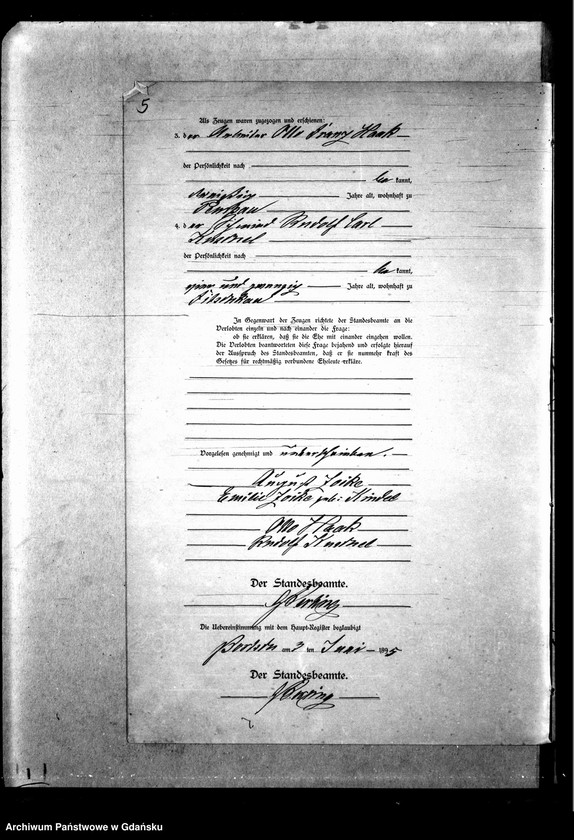 5
Als Zeugen waren zugezogen und erschienen:
3. der Otto Franz Haak
der Persönlichkeit nach
be kannt,
dreißig Jahre alt, wohnhaft zu
4. der Schmied Rudolf Carl
der Persönlichkeit nach
be kannt,
und zwanzig Jahre alt, wohnhaft zu
In Gegenwart der Zeugen richtete der Standesbeamte an die
Verlobten einzeln und nach einander die Frage:
ob sie erklären, daß sie die Ehe mit einander eingehen wollen.
Die Verlobten beantworteten diese Frage bejahend und erfolgte hierauf
der Ausspruch des Standesbeamten, daß er sie nunmehr kraft des
Gesetzes für rechtmäßig verbundene Eheleute erkläre.
Vorgelesen, genehmigt und unterschrieben.
August Joike
Emilie Joike geb:
Otto Haak
Rudolf
Der Standesbeamte.
Die Uebereinstimmung mit dem Haupt-Register beglaubigt
am 3 ten Juni 1895
Der Standesbeamte.
Archiwum Państwowe w Gdańsku